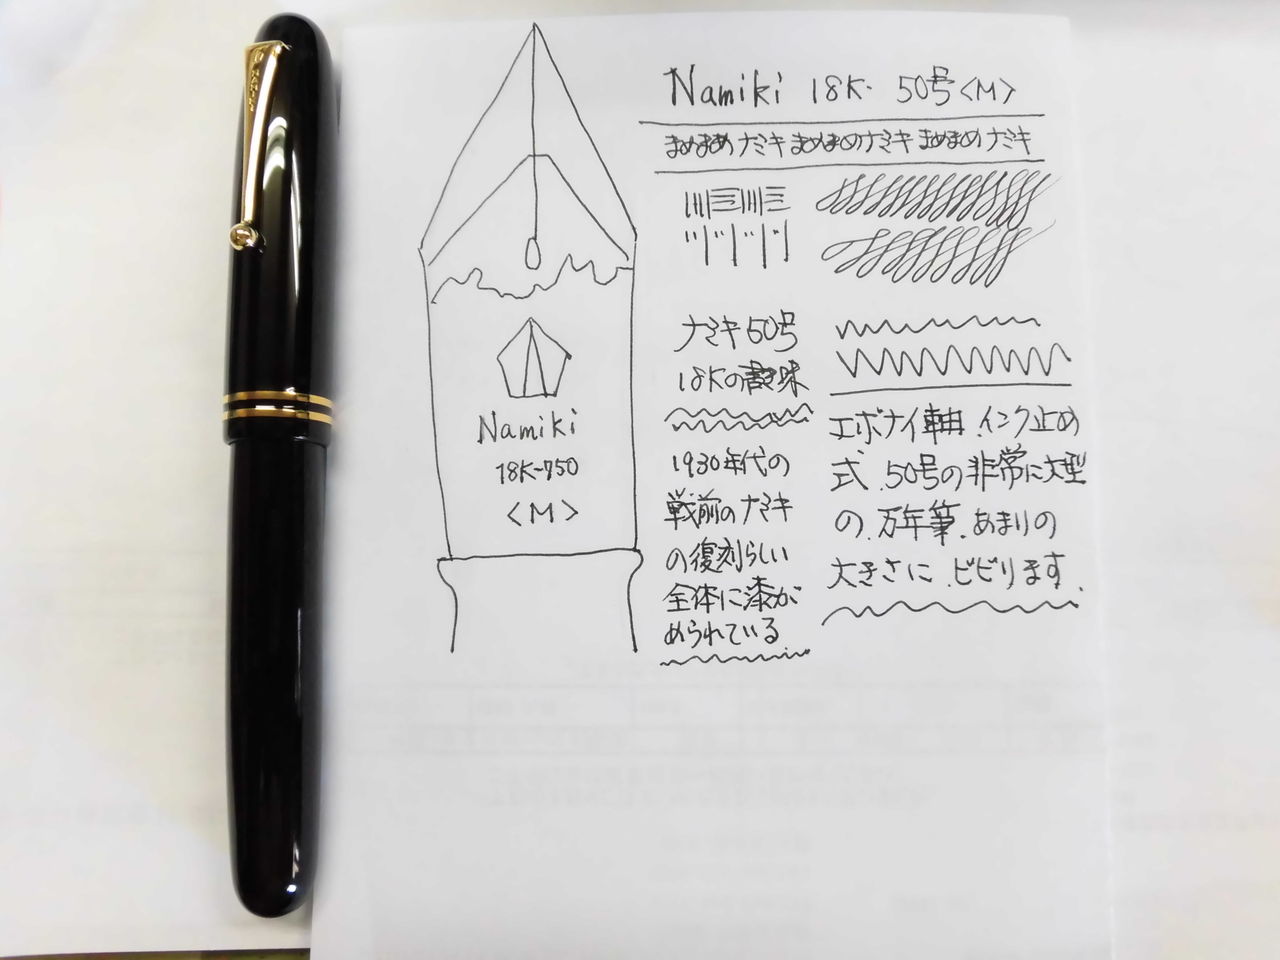 Namiki 18K- 50号<M>
まめまめナミキまめまめナミキまめまめナミキ
Namiki
18K-750
<M>
ナミキ50号
18Kの書き味
1930年代の
戦前のナミキ
の復刻らしい
全体に漆が
められている
エボナイ軸.インク止め
式.50号の非常に大型
の.万年筆.あまりの
大きさに.ビビります.